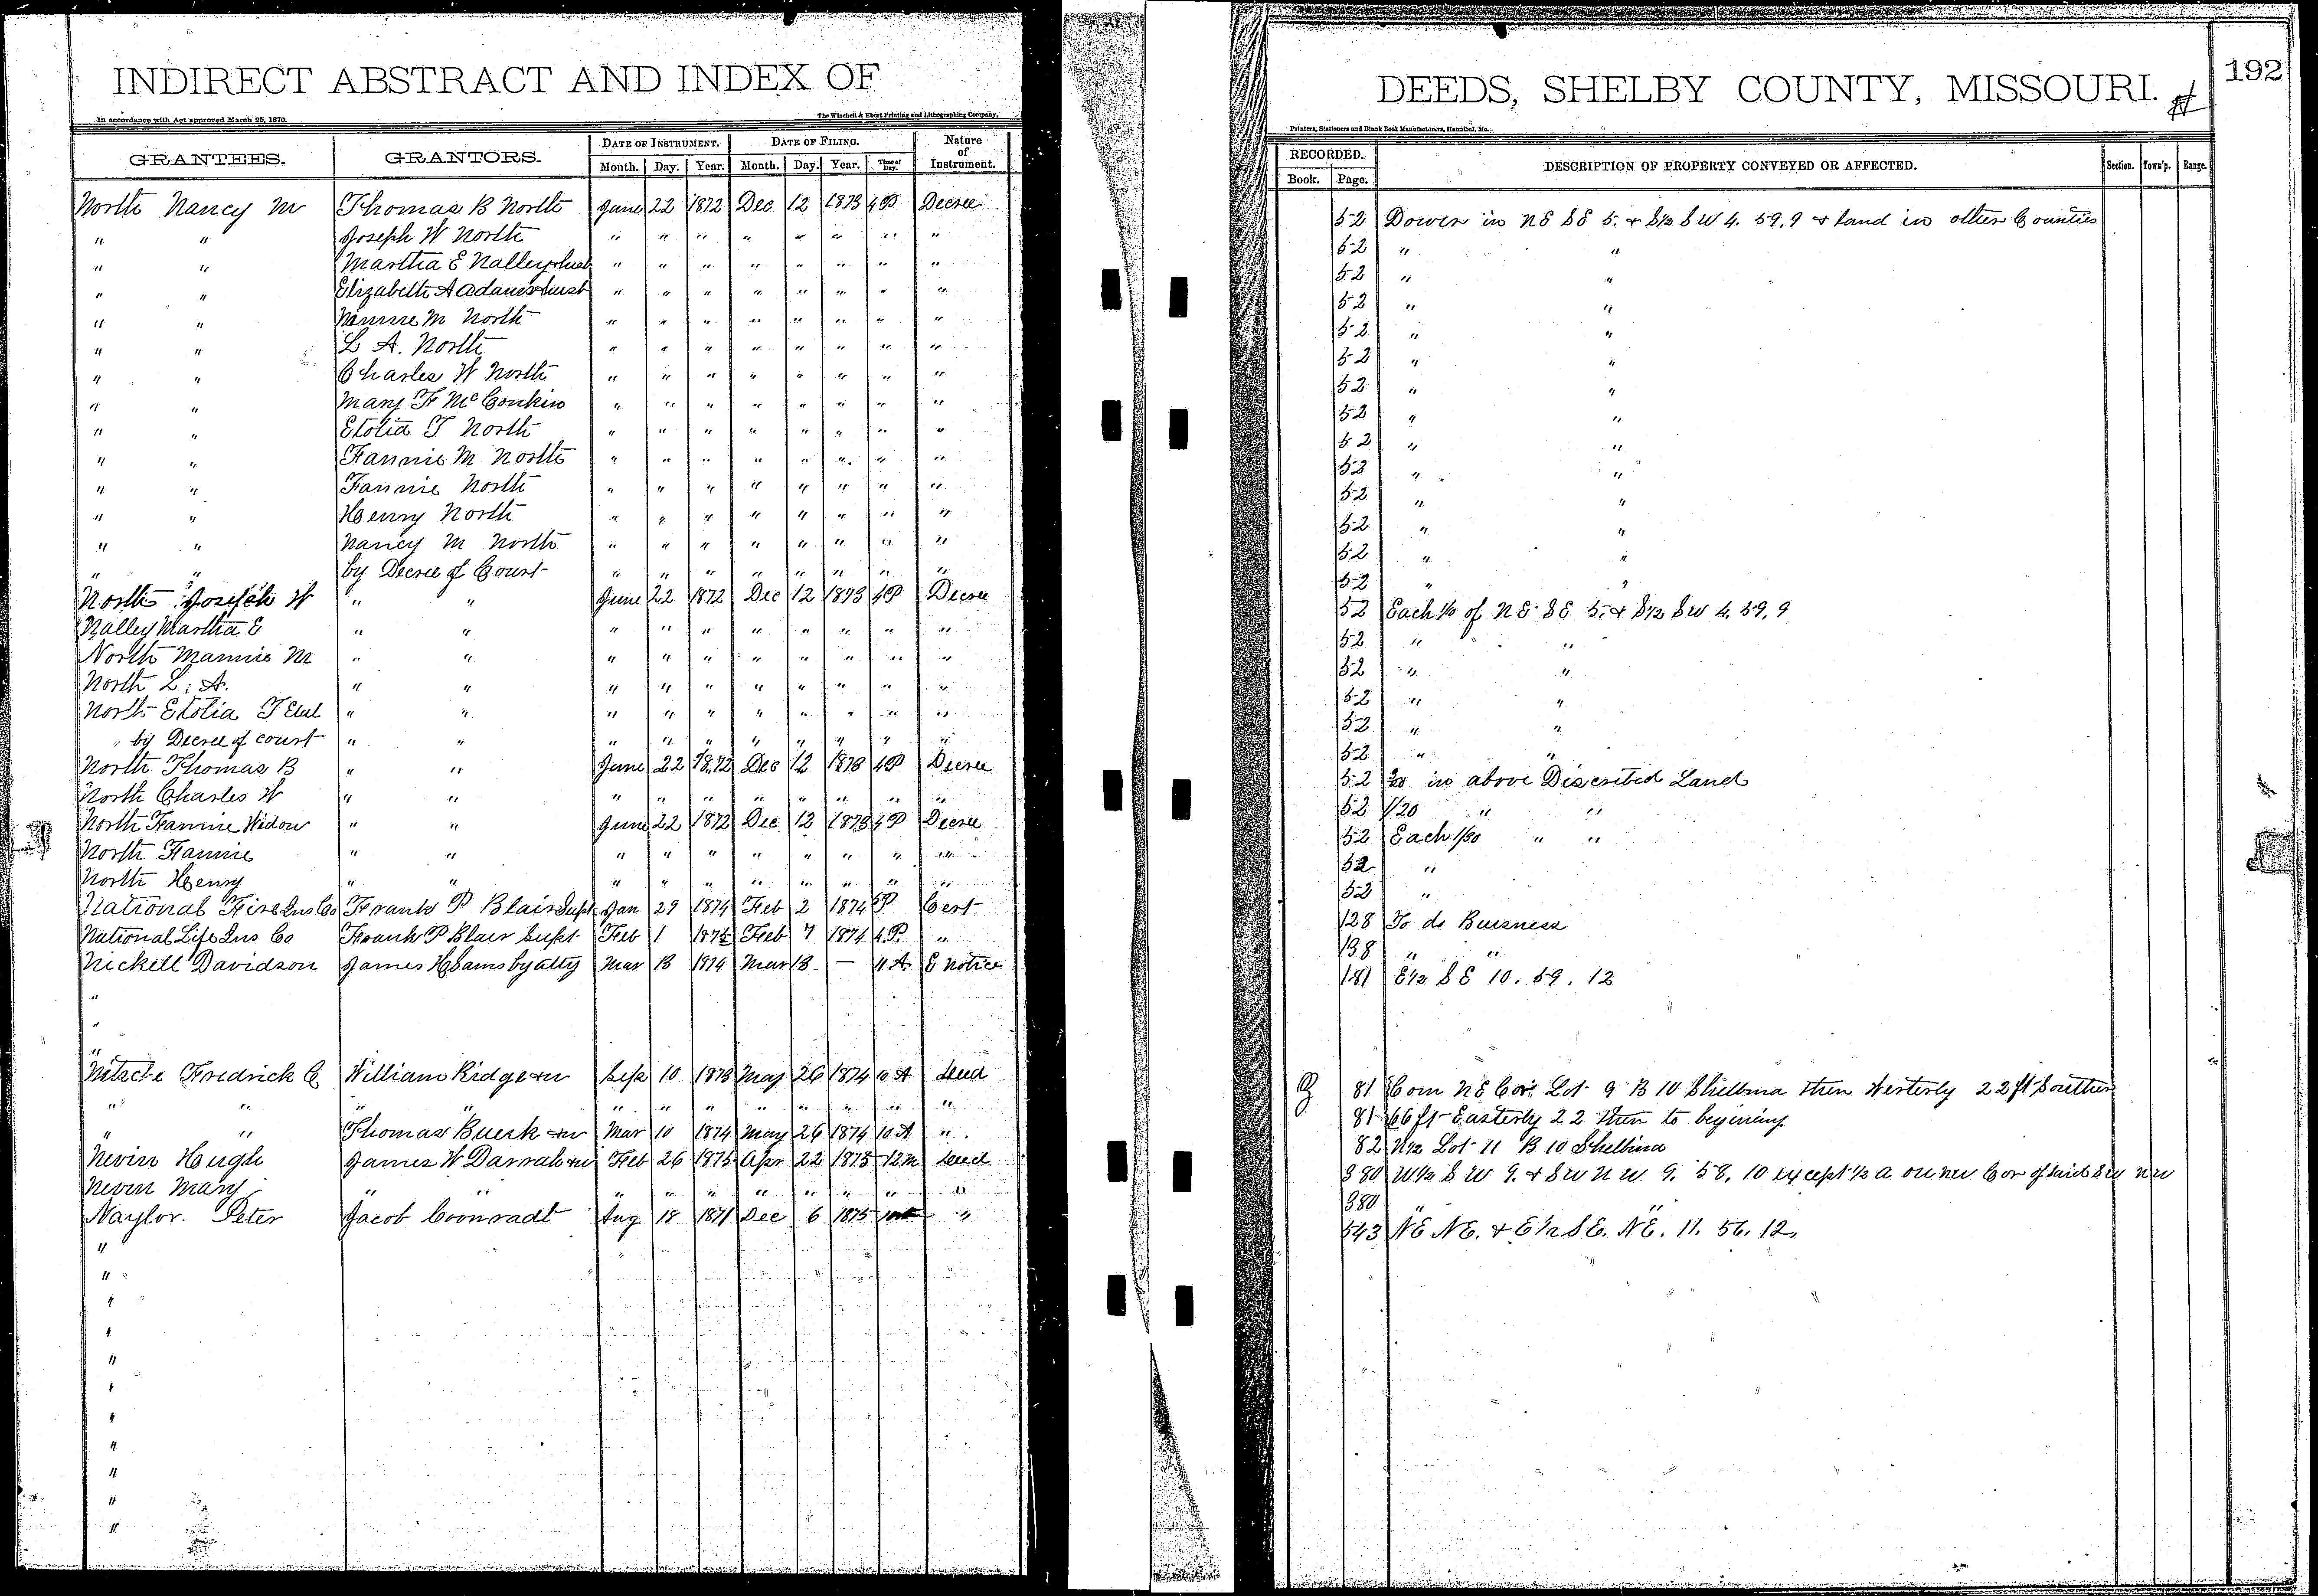 INDIRECT ABSTRACT AND INDEX OF
DEEDS, SHELBY COUNTY, MISSOURI.
192
In accordance with Act approved March 25, 1870.
The Winchell & Ebert Printing and Lithographing Company,
Printers, Stationers and Blank Book Manufacturers, Hannibal, Mo.
GRANTEES. GRANTORS. DATE OF INSTRUMENT. Month. Day. Year. DATE OF FILING. Month. Day. Year. Time of Day. Nature of Instrument. RECORDED. Book. Page. DESCRIPTION OF PROPERTY CONVEYED OR AFFECTED. Section. Town'p. Range.
North Nancy M Thomas B North June 22 1872 Dec 12 1873 4P Decree 52 Dower in NE SE 5. & S½ SW 4. 59, 9 & land in other Counties
" " Joseph W North " " " " " " " " 52 " "
" " Martha E Nalley & husb " " " " " " " " 52 " "
" " Elizabeth A Adams & husb " " " " " " " " 52 " "
" " Nannie M North " " " " " " " " 52 " "
" " L A. North " " " " " " " " 52 " "
" " Charles W North " " " " " " " " 52 " "
" " Mary F McConkin " " " " " " " " 52 " "
" " Etolia T North " " " " " " " " 52 " "
" " Fannie M North " " " " " " " " 52 " "
" " Fannie North " " " " " " " " 52 " "
" " Henry North " " " " " " " " 52 " "
" " Nancy M North " " " " " " " " 52 " "
" " by Decree of Court " " " " " " " " 52 " "
North Joseph W " " June 22 1872 Dec 12 1873 4P Decree 52 Each 1/10 of NE SE 5. & S½ SW 4, 59, 9
Nalley Martha E " " " " " " " " " " 52 " "
North Mannie M " " " " " " " " " " 52 " "
North L. A. " " " " " " " " " " 52 " "
North Etolia T Etal " " " " " " " " " " 52 " "
" by Decree of court " " " " " " " " " " 52 " "
North Thomas B " " June 22 1872 Dec 12 1873 4P Decree 52 in above Discribed Land
North Charles W " " " " " " " " " " 52 1/20 " "
North Fannie Widow " " June 22 1872 Dec 12 1873 4P Decree 52 Each 1/30 " "
North Fannie " " " " " " " " " " 52 "
North Henry " " " " " " " " " " 52 "
National Fire Ins Co Frank P Blair Supt Jan 29 1874 Feb 2 1874 P Cert 128 To do Buisness
National Life Ins Co Frank P Blair Supt Feb 1 1874 Feb 7 1874 4P. " 138 " "
Nickell Davidson James H Sams by atty Mar 13 1874 Mar 13 — 11 A. E Notice 181 E½ SE 10. 59. 12
"
"
"
Nitsche Fredrick C William Ridge & w Sep 10 1873 May 26 1874 10 A Deed 81 Com NE Cor Lot 9 B 10 Shelbina then Westerly 22 ft Southern
" " " " " " " " " " " " 81 66 ft Easterly 22 then to begining
" " Thomas Buerk & w Mar 10 1874 May 26 1874 10 A " 82 N½ Lot 11 B 10 Shelbina
Nevin Hugh James W Darrah & w Feb 26 1875 Apr 22 1875 12 M Deed 380 W½ SW 9. & SW NW 9. 58, 10 except ½ a on NW Cor of said SW NW
Neven Mary " " " " " " " " " " 380 " "
Naylor. Peter Jacob Coonradt Aug 18 1871 Dec 6 1875 " 543 NE NE. & E½ SE. NE. 11. 56. 12,
"
"
"
"
"
"
"
"
"
"
"